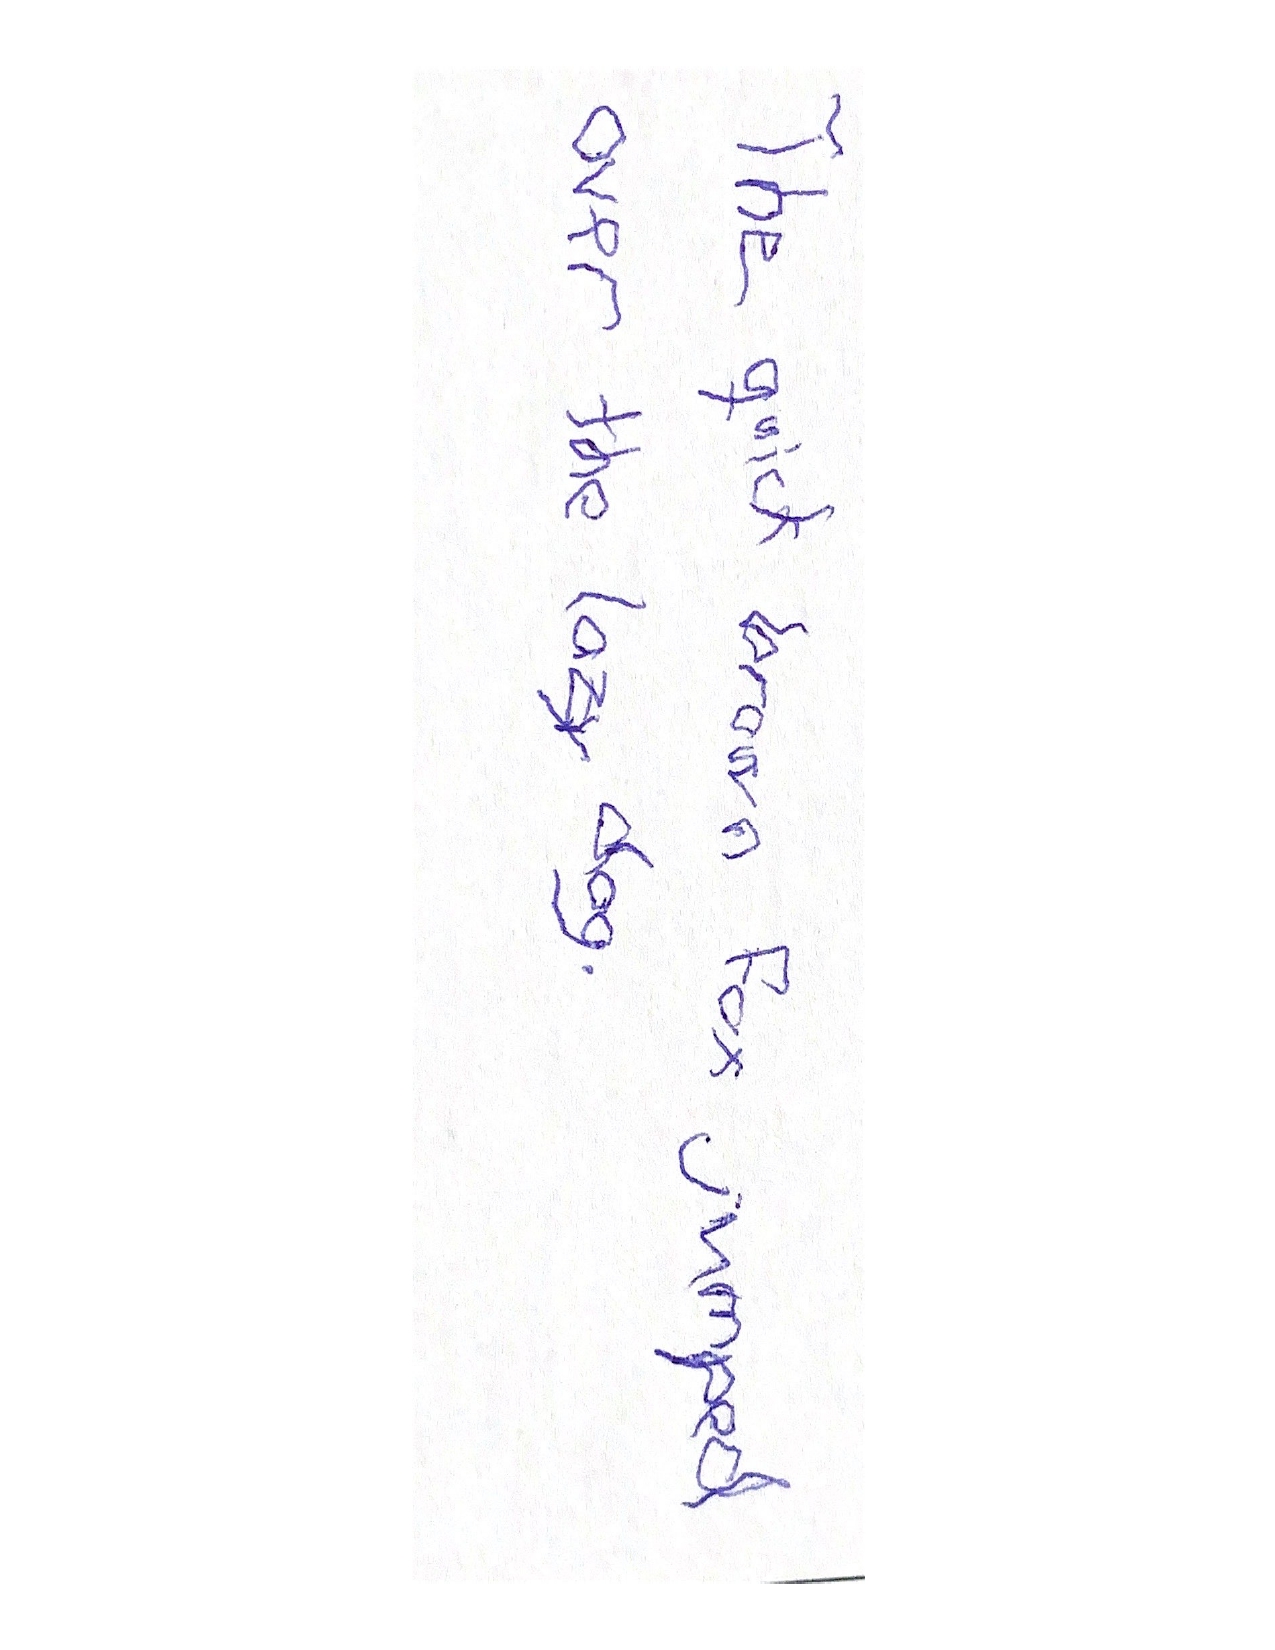 The quick brown Fox jumped
over the lazy dog.